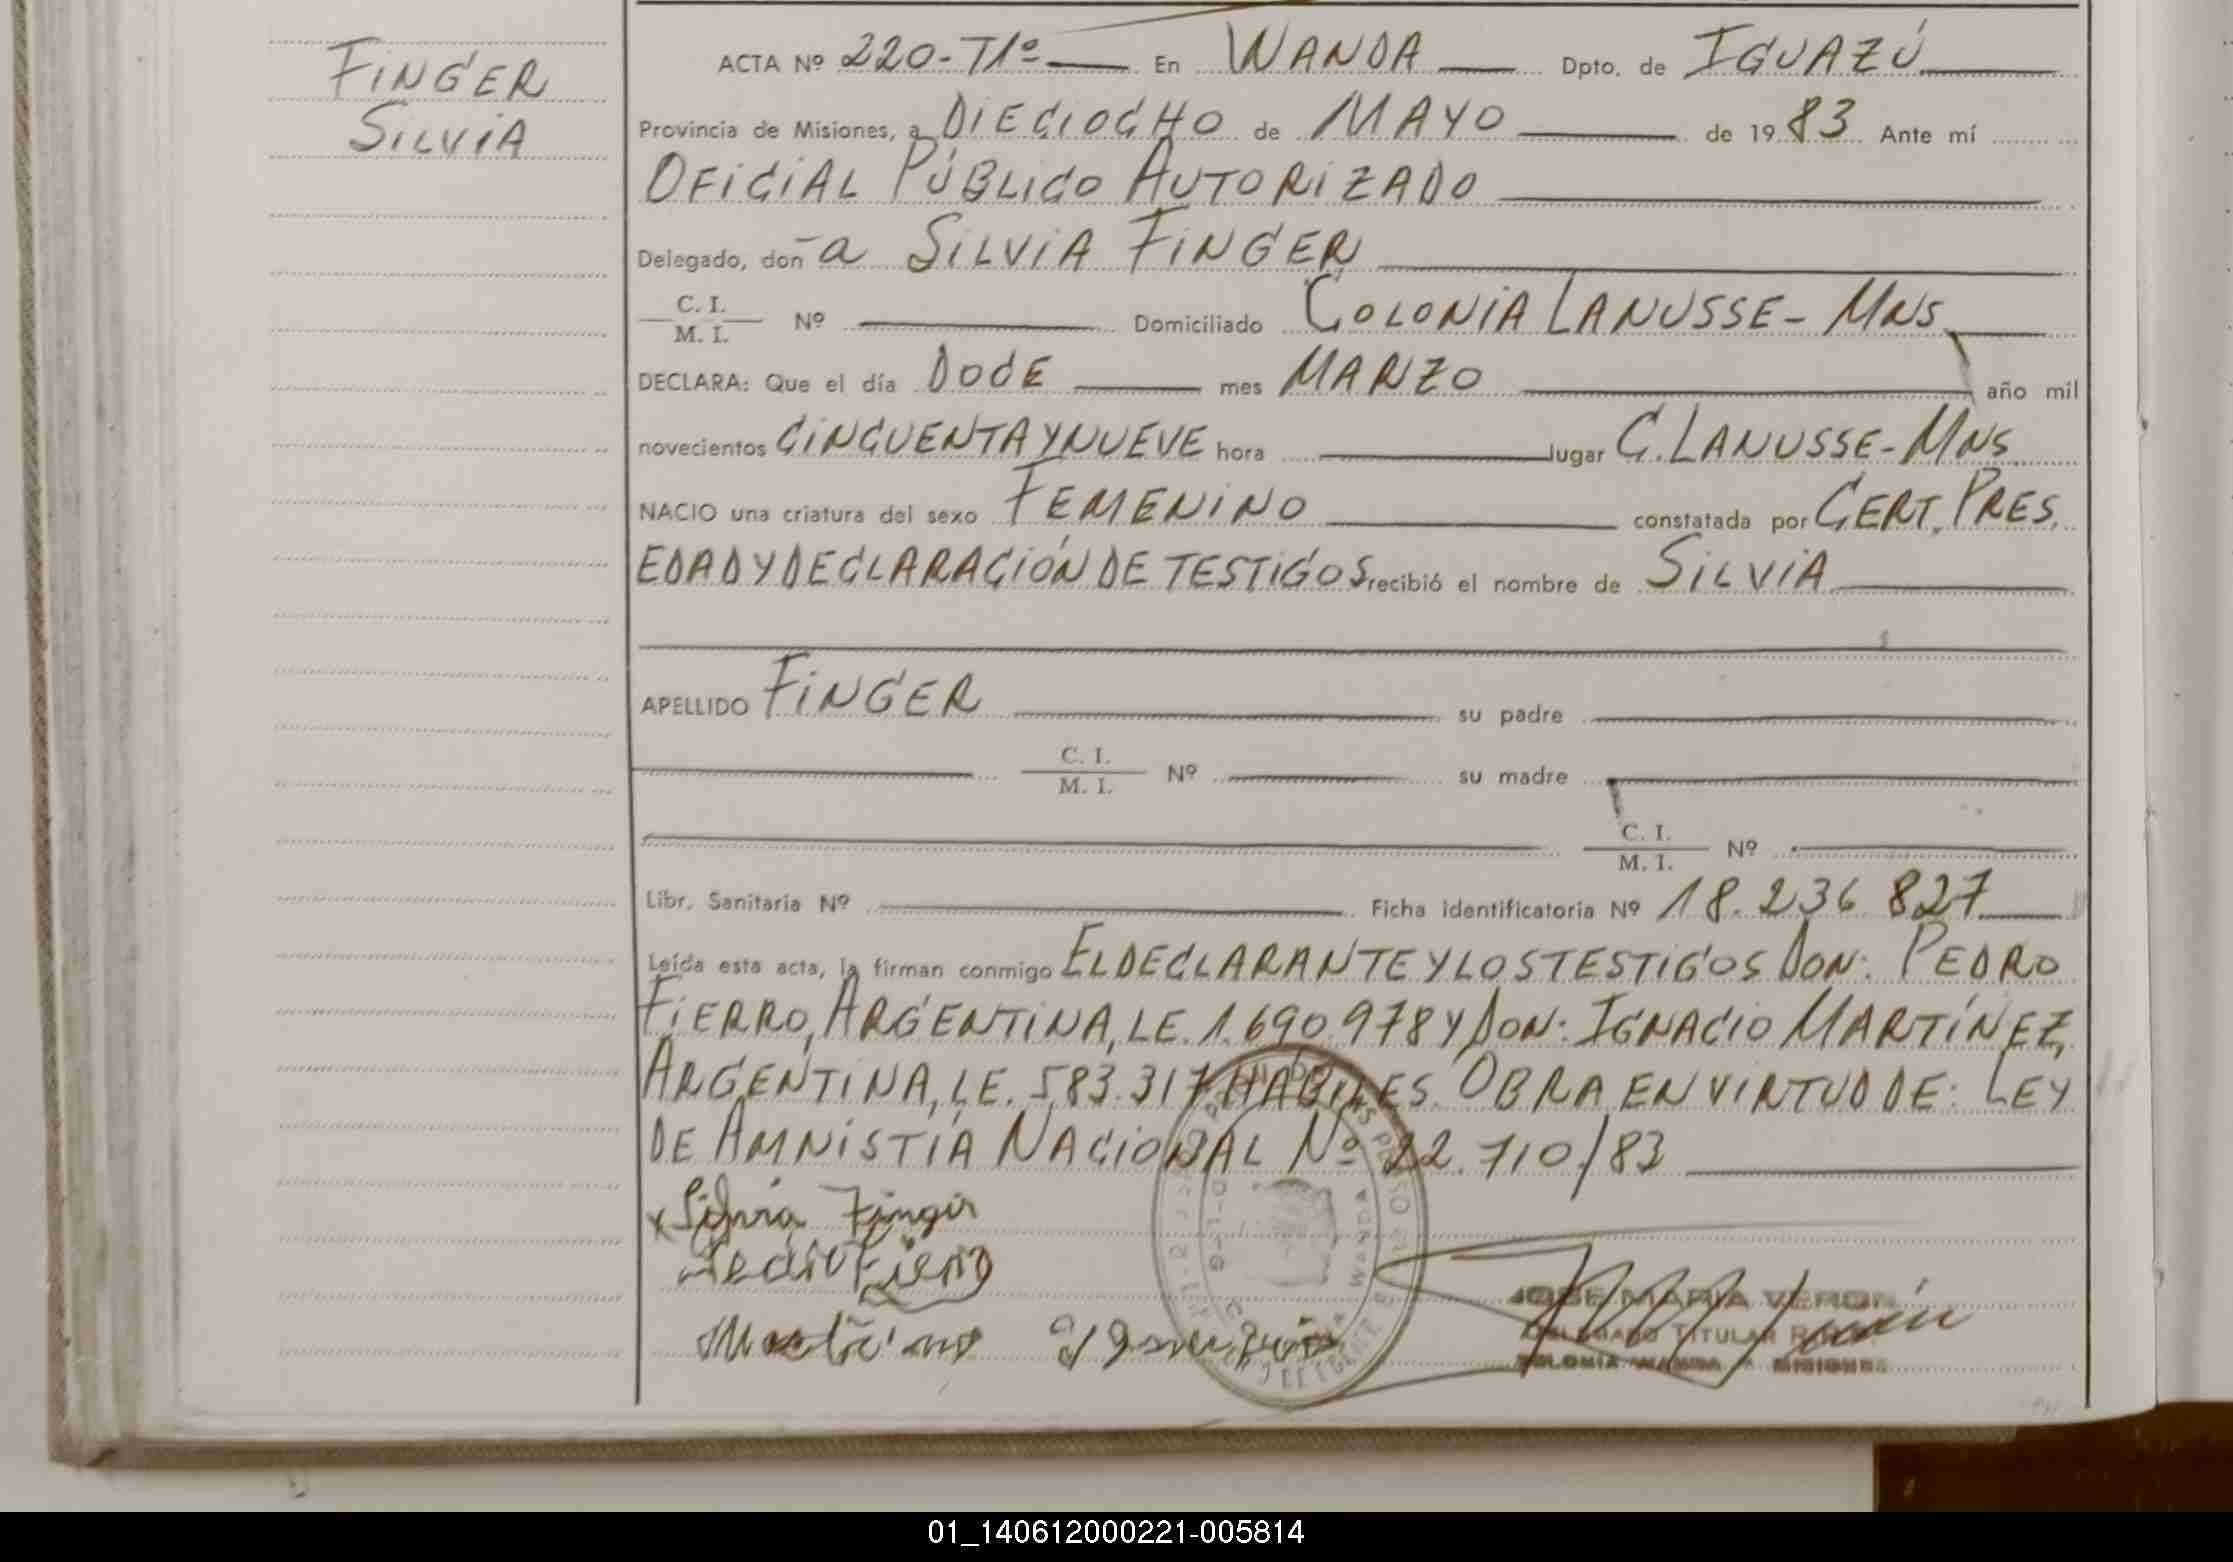 FINGER
SILVIA
ACTA Nº 220-T1º En WANDA Dpto. de IGUAZÚ
Provincia de Misiones, a DIECIOCHO de MAYO de 1983 Ante mí
OFICIAL PÚBLICO AUTORIZADO
Delegado, doña SILVIA FINGER
C. I.
M. I. Nº Domiciliado COLONIA LANUSSE - MNS
DECLARA: Que el día DOCE mes MARZO año mil
novecientos CINCUENTA Y NUEVE hora lugar C. LANUSSE - MNS.
NACIO una criatura del sexo FEMENINO constatada por CERT. PRES.
EDAD Y DECLARACIÓN DE TESTIGOS recibió el nombre de SILVIA
APELLIDO FINGER su padre
C. I.
M. I. Nº su madre
C. I.
M. I. Nº
Libr. Sanitaria Nº Ficha identificatoria Nº 18.236 827
Leída esta acta, la firman conmigo EL DECLARANTE Y LOS TESTIGOS DON: PEDRO
FIERRO, ARGENTINA, L.E. 1.690.978 Y DON: IGNACIO MARTÍNEZ,
ARGENTINA, L.E. 583.317 HABILES. OBRA EN VIRTUD DE: LEY
DE AMNISTÍA NACIONAL Nº 22.710/83
x Silvia Finger
Pedro Fierro
JOSE MARIA VERON
DELEGADO TITULAR
COLONIA WANDA - MISIONES
01_140612000221-005814